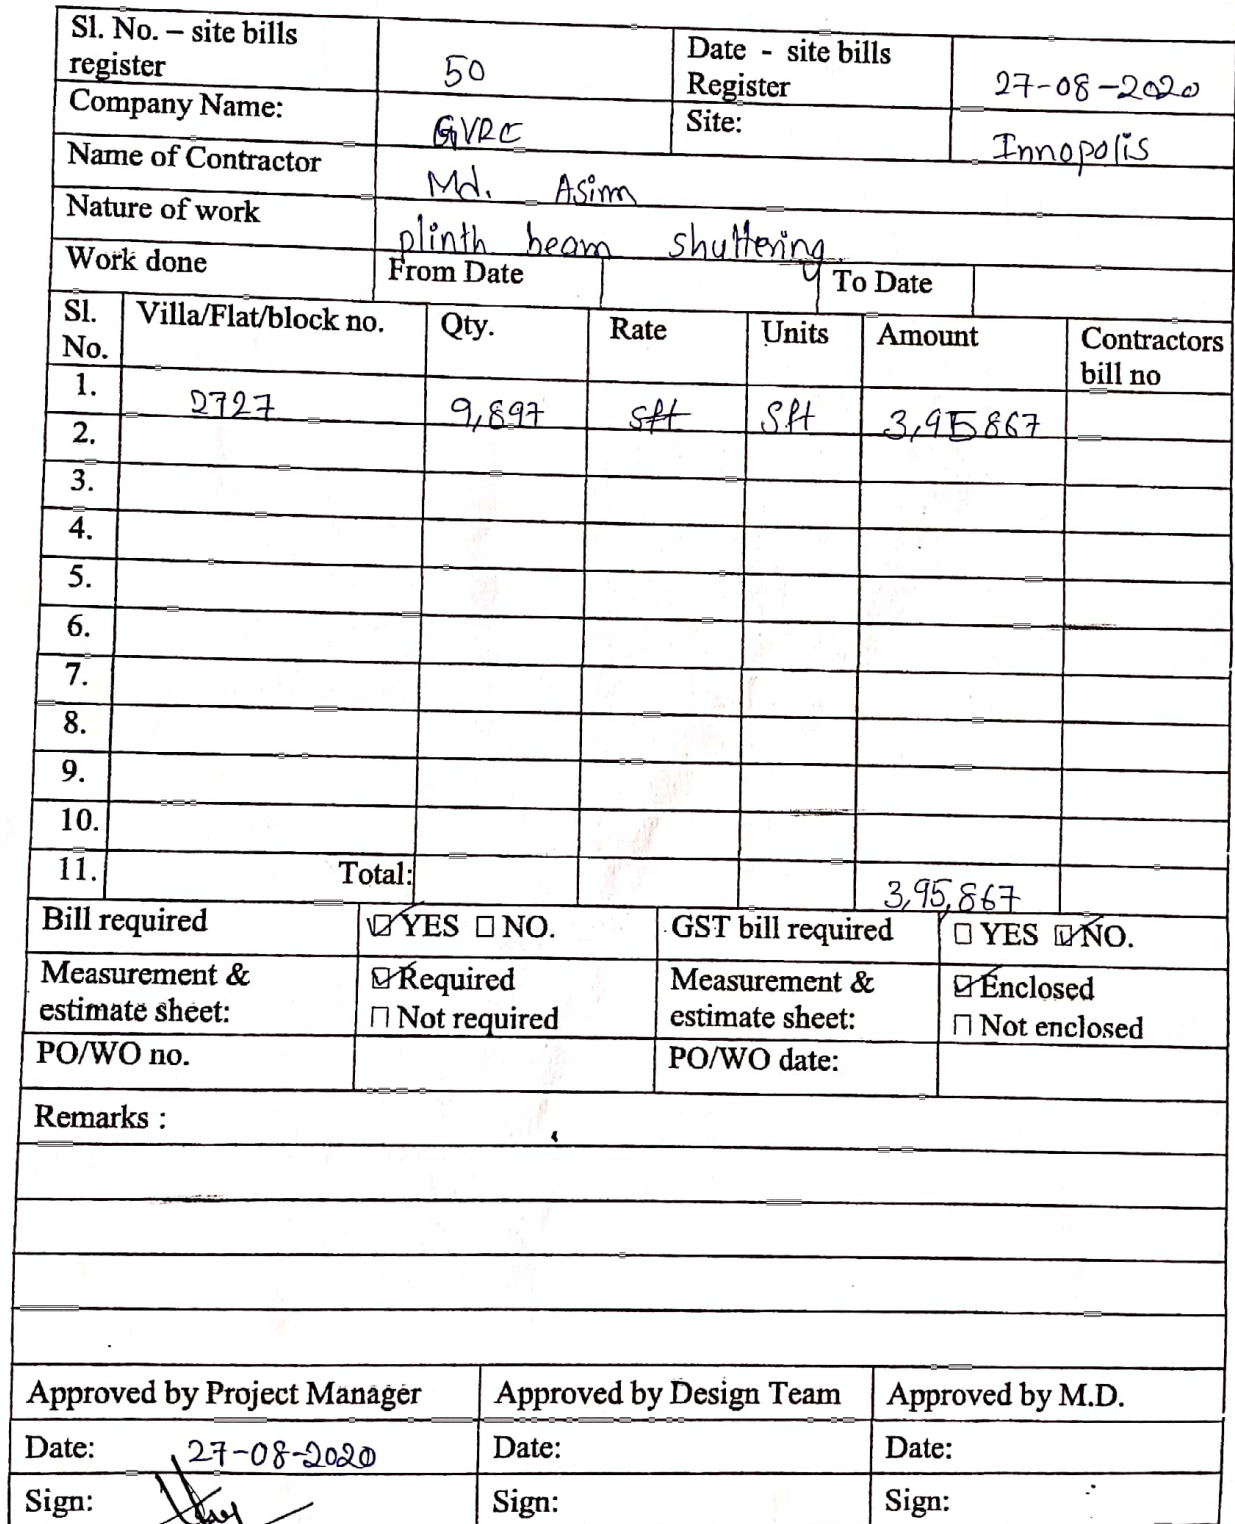 Sl. No. – site bills register 50 Date - site bills Register 27-08-2020
Company Name: GVRC Site: Innopolis
Name of Contractor Md. Asim
Nature of work plinth beam shuttering
Work done From Date To Date
Sl. No. Villa/Flat/block no. Qty. Rate Units Amount Contractors bill no
1. 2727 9,897 sft Sft 3,95867
2.
3.
4.
5.
6.
7.
8.
9.
10.
11. Total: 3,95,867
Bill required ☑ YES ☐ NO. GST bill required ☐ YES ☑ NO.
Measurement & estimate sheet: ☑ Required ☐ Not required Measurement & estimate sheet: ☑ Enclosed ☐ Not enclosed
PO/WO no. PO/WO date:
Remarks :
Approved by Project Manager Approved by Design Team Approved by M.D.
Date: 27-08-2020 Date: Date:
Sign: Sign: Sign: